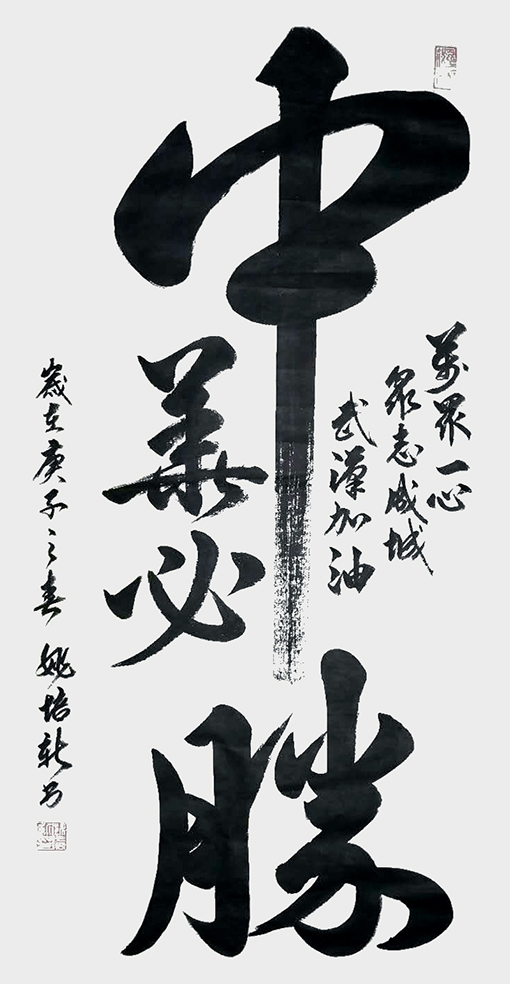 中華必勝
萬眾一心
眾志成城
武漢加油
歲在庚子之春 姚培新書